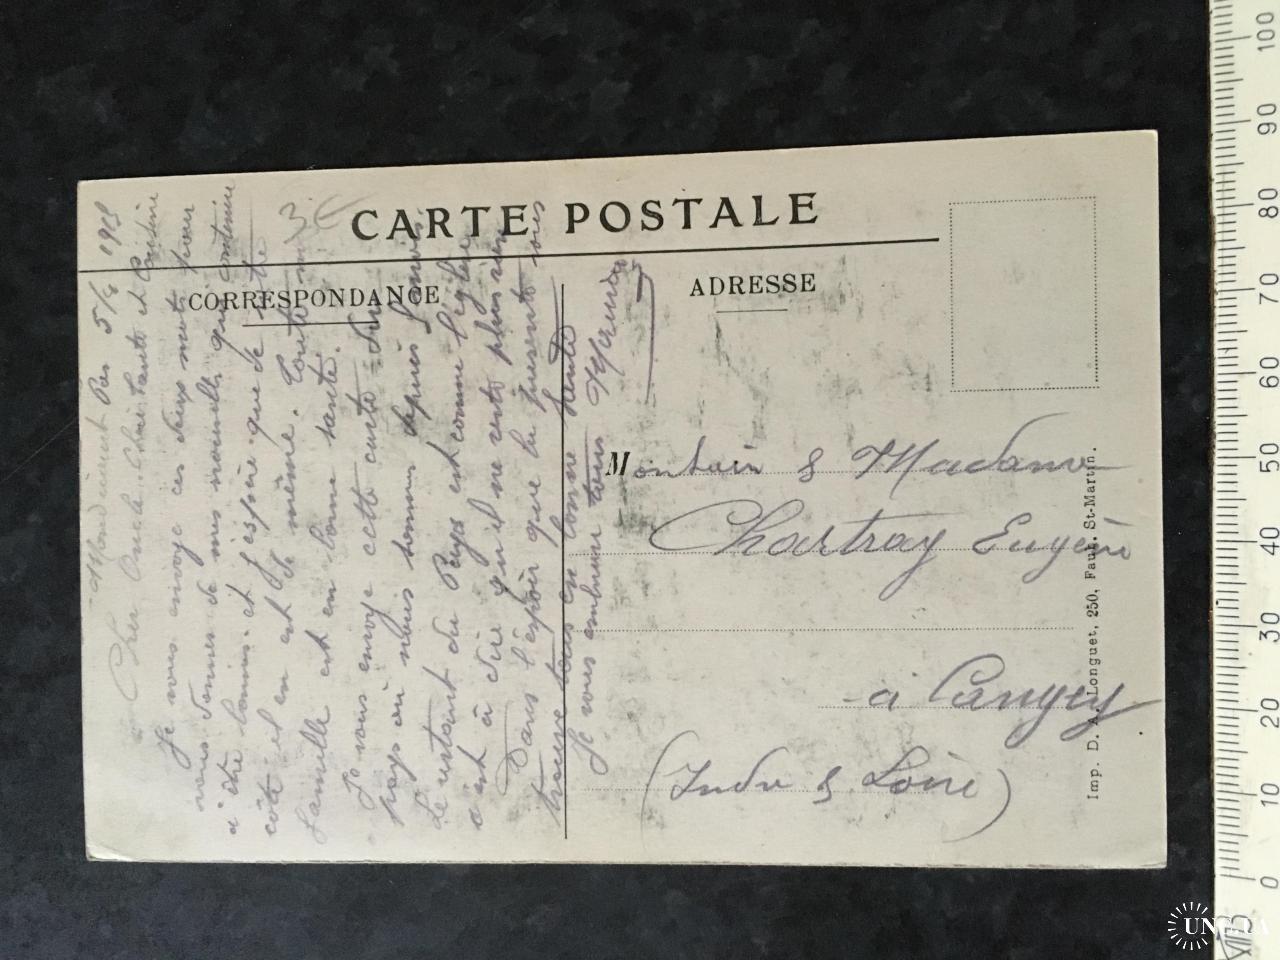 CARTE POSTALE
CORRESPONDANCE
ADRESSE
5/8 195
Cher Oncle Chère Tante et Cousine
Je vous envoye ces deux mots pour
vous donner de mes nouvelles qui continue
a être bonnes et j'espère que de votre
côté il en est de même. Toute ma
famille est en bonne santé.
Je vous envoye cette carte du
pays où nous sommes depuis
Le restant du Pays est comme l'église
c'est à dire qu'il ne reste plus rien
Dans l'espoir que la présente vous
trouve tous en bonne santé
Je vous embrasse tous
Monsieur & Madame
Chartray Eugène
à Cangey
(Indre & Loire)
Imp. D. A. Longuet, 250, Faub. St-Martin.
3€
0 10 20 30 40 50 60 70 80 90 100
UNC.UA